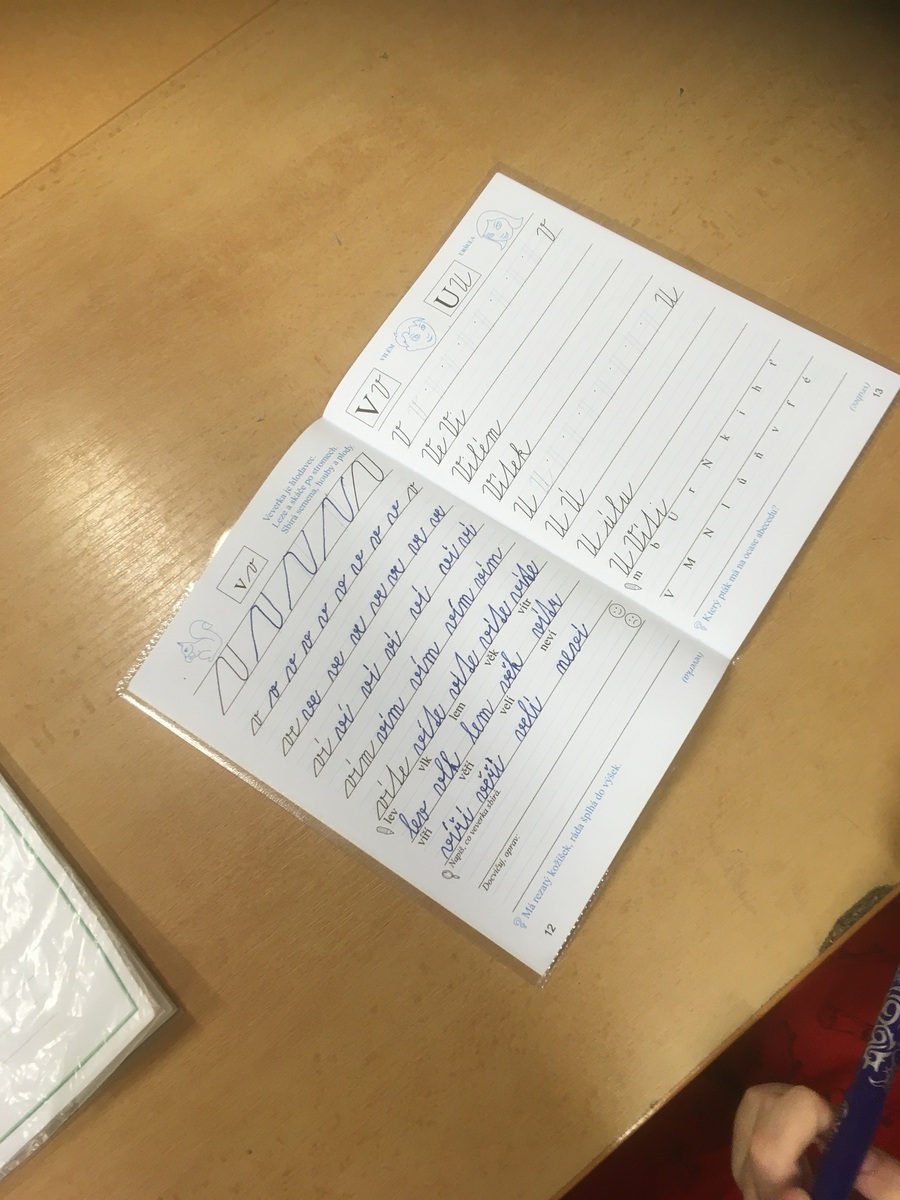 v v
Veverka je hlodavec.
Leze a skáče po stromech.
Sbírá semena, houby a plody.
v v v v v v v v v
ve ve ve ve ve ve ve
ví ví ví ví ví ví ví
vím vím vím vím vím
víše víše víše víše víske
lev vlk lem věk vítr
lev vlk lem věk vítr
víří věří velí neví
víří věří velí neví
Napiš, co veverka sbírá.
Docvičuj, oprav:
Má rezatý kožíšek, ráda šplhá do výšek.
(veverka)
12
V V
VILÉM
U U
URŠULA
V V
Ve Ví
Vilém
Vítek
U U
U Ú
U úlu
U Vítů
m b U r Ň k i h ř
V M N l ů ň v f é
Který pták má na ocase abecedu?
13